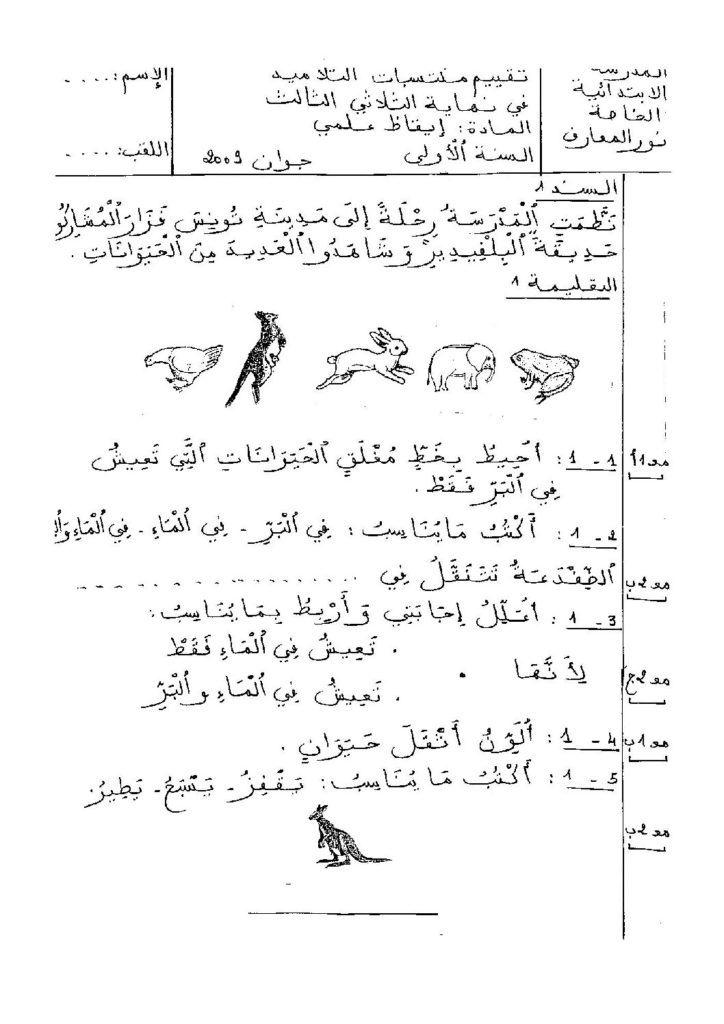 المدرسة
الابتدائية
الخاصة
نور المعارف
تقييم مكتسبات التلاميذ
في نهاية الثلاثي الثالث
المادة: إيقاظ علمي
السنة الأولى جوان 2009
الإسم: ....
اللقب: ....
السند 1
نَظَّمَتِ الْمَدْرَسَةُ رِحْلَةً إِلَى مَدِينَةِ تُونِسَ فَزَارَ الْمُشَارِكُو
حَدِيقَةَ الْبِلْفِيدِيرِ وَشَاهَدُوا الْعَدِيدَ مِنَ الْحَيَوَانَاتِ.
التعليمة 1
1 - 1 : أُحِيطُ بِخَطٍّ مُغْلَقٍ الْحَيَوَانَاتِ الَّتِي تَعِيشُ
فِي الْبَرِّ فَقَطْ.
مع 1أ
1 - 2 : أَكْتُبُ مَا يُنَاسِبُ: فِي الْبَرِّ - فِي الْمَاءِ - فِي الْمَاءِ وَالْ
الضِّفْدَعَةُ تَتَنَقَّلُ فِي ....................
مع 2ب
1 - 3 : أُعَلِّلُ إِجَابَتِي وَأَرْبِطُ بِمَا يُنَاسِبُ:
. تَعِيشُ فِي الْمَاءِ فَقَطْ
لِأَنَّهَا .
. تَعِيشُ فِي الْمَاءِ والْبَرِّ
مع 2ج
1 - 4 : أُلَوِّنُ أَثْقَلَ حَيَوَانٍ.
مع 1ب
1 - 5 : أَكْتُبُ مَا يُنَاسِبُ: يَقْفِزُ - يَسْبَحُ - يَطِيرُ.
مع 2ب